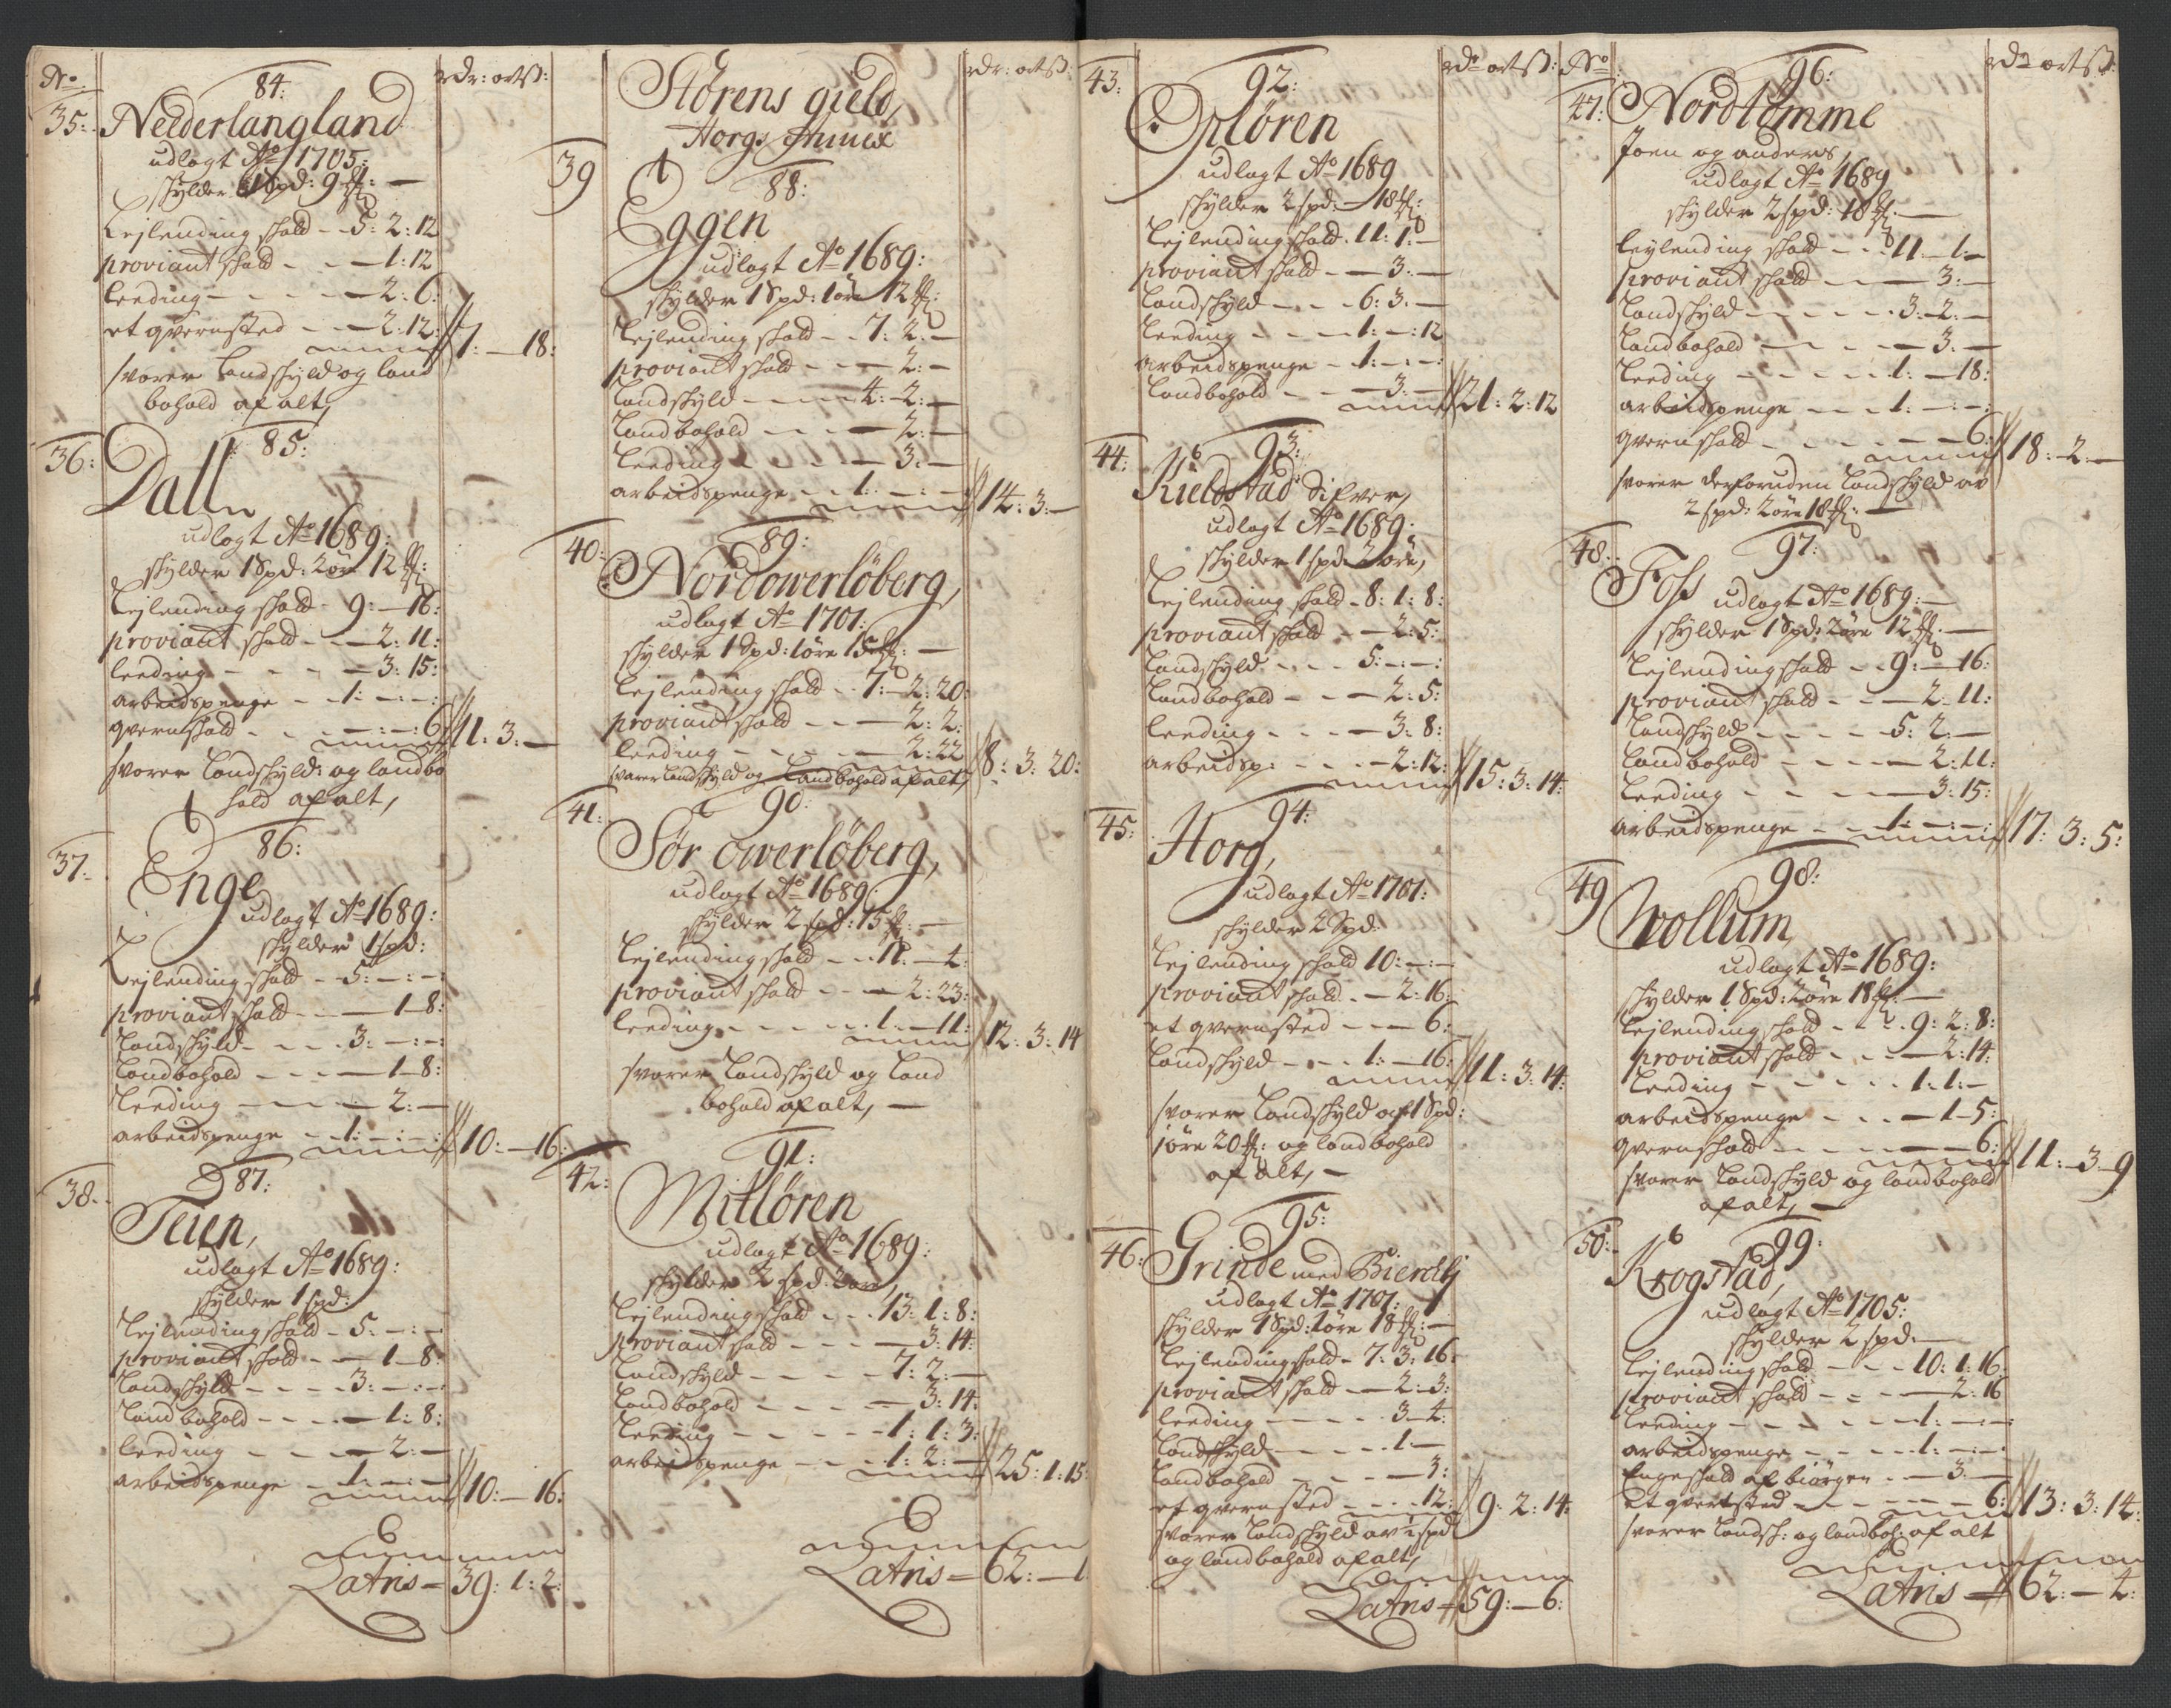 No
rdr: ort ß:
84:
35:
Nederlangland
udlagt Ao 1705:
skylder 1 Spd: 9 ℔: —
Leilending skatt - - 5: 2: 12
proviant skatt - - — 1: 12
Leeding - - - - — 2: 6:
et qvernsted - - — 2: 12:
7: — 18:
svarer Landskyld og land
bohold af alt,
85:
36:
Dall
udlagt Ao 1689:
skylder 1 Spd: 2 öre 12 ℔:
Leilending skatt - 9: — 16:
proviant skatt - - — 2: 11:
Leeding - - - - — 3: 15:
arbeidspenge - - 1: — : —
qvernskatt - - - - : — : 6
11: 3: —
svarer Landskyld: og landbo
hold af alt,
86:
37:
Enge
udlagt Ao 1689:
skylder 1 spd:
Leilending skatt - - 5: — : —
proviant skatt - - — 1 - 8:
Landskyld - - - 3: — : —
Landbohold - - - — 1 - 8:
Leeding — - - — 2: —
arbeidspenge - - 1: — : —
10: — 16:
87:
38:
Teien,
udlagt Ao 1689:
skylder 1 spd:
Leilending skatt - 5: — : —
proviant skatt - - — 1 - 8:
Landskyld - - - - 3: — : —
Landbohold - - - — 1: 8:
Leeding - - - — 2: —
arbeidspenge - - 1: — : —
10: — 16:
Latris = 39: 1: 2:
rdr: ort ß:
Störens gield,
Horgs Annex
39
88:
Eggen
udlagt Ao 1689:
skylder 1 Spd: 1 öre 12 ℔:
Leilending skatt - - 7: 2: —
proviant skatt - - - — 2: —
Landskyld - - - — 4: 2: —
Landbohold - - - — 2: —
Leeding - - - - — 3: —
arbeidspenge - - 1: — : —
14: 3: —
89:
40:
Nordowerlöberg,
udlagt Ao 1701:
skylder 1 Spd: 1 öre 15 ℔: —
Leilending skatt - - 7: — 2: 20:
proviant skatt - - — 2: 2:
Leeding - - - - — 2: 22
8: 3: 20:
svarer Landskyld og Landbohold af alt,
90:
41:
Sör owerlöberg,
udlagt Ao 1689:
skylder 2 spd: 15 ℔: —
Leilending skatt - - 11: — 4:
proviant skatt - - — 2: 23:
Leeding - - - - - 1: — 11:
12: 3: 14
svarer Landskyld og Land
bohold af alt, —
91:
42:
Mitlören
udlagt Ao 1689:
skylder 2 spd: 2 öre,
Leilending skatt - - 13: 1: 8:
proviant skatt - - - — 3: 14:
Landskyld - - - - 7: 2: —
Landbohold - - - - — 3: 14:
Leeding - - - - - 1: 1: 3:
arbeidspenge - - - 1: 2: —
25: 1: 15
Latris = 62: — 1
rdr ort ß:
92:
43:
Oplören
udlagt Ao 1689
skylder 2 spd: — 18 ℔:
Leilending skatt. 11: 1: —
proviant skatt - - — 3: —
Landskyld - - - 6: 3: —
Leeding - - - - 1: — : 12
arbeidspenge - 1: — : —
Landbohold - - - — 3: —
21: 2: 12
93:
44:
Kieldstad Sifver,
udlagt Ao 1689:
skylder 1 spd: 2 öre,
Leilending skatt - 8: 1: 8:
proviant skatt - — 2: 5:
Landskyld - - - 5: — : —
Landbohold - - — 2: 5:
Leeding - - - — 3: 8:
arbeidsp: - - - — 2: 12:
15: 3: 14:
94:
45:
Horg,
udlagt Ao 1701:
skylder 2 Spd:
Leilending skatt 10: — : —
proviant skatt - - 2: 16:
et qvernsted - - — 6:
Landskyld - - - 1: — 16:
11: 3: 14:
svarer Landskyld af 1 Spd:
1 öre 20 ℔: og landbohold
af alt, —
95:
46:
Grinde med Bierchlj
udlagt Ao 1701:
skylder 1 Spd: 1 öre 18 ℔: —
Leilending skatt - 7: 3: 16:
proviant skatt - — 2: 3:
Leeding — - - - 3 - 4:
Landskyld - - - - 1 —
Landbohold - - - — 3:
et qvernsted - - - - 12:
9: 2: 14:
svarer Landskyld av ½ spd
og landbohold af alt,
Latris = 59: — 6:
No
rdr ort ß:
96:
47:
Nordtømme
Joen og anders,
udlagt Ao 1689
skylder 2 spd: 18 ℔: —
Leilending skatt - - - 11 — 1: —
proviant skatt - - - — 3: —
Landskyld - - - - - 3: 2: —
Landbohold - - - - — 3: —
Leeding - - - - - 1: — 18:
arbeidspenge - - - 1: — : —
qvernskatt - - - - — 6:
18: 2: —
svarer desforuden Landskyld av
2 spd: 2 öre 18 ℔: —
97:
48:
Foss udlagt Ao 1689: —
skylder 1 Spd: 2 öre 12 ℔: —
Leilending skatt - - 9: — 16:
proviant skatt - - — 2: 11:
Landskyld - - - - 5: 2: —
Landbohold - - - - — 2: 11:
Leeding - - - - — 3: 15:
arbeidspenge - - 1: — : —
17: 3: 5:
98:
49
Wollum,
udlagt Ao 1689:
skylder 1 Spd: 2 öre 18 ℔: —
Leilending skatt - - - 9: 2: 8:
proviant skatt - - - — 2: 14:
Leeding - - - - - - 1: 1: —
arbeidspenge - - - — 1 - 5:
qvernskatt - - - - — 6:
11: — 3 — 9
svarer Landskyld og landbohold
af alt, —
99:
50:
Krogstad,
udlagt Ao 1705:
skylder 2 spd: —
Leilending skatt - - - 10: 1: 16
proviant skatt - - - — 2: 16
Leeding - - - - - 1: — : —
arbeidspenge - - - - 1: — : —
Engeskatt af biörgen - - — 3: —
et qvernsted - - - - - 6:
13: 3: 14:
svarer Landsk: og landboh: af alt
Latris = 62: — 4: